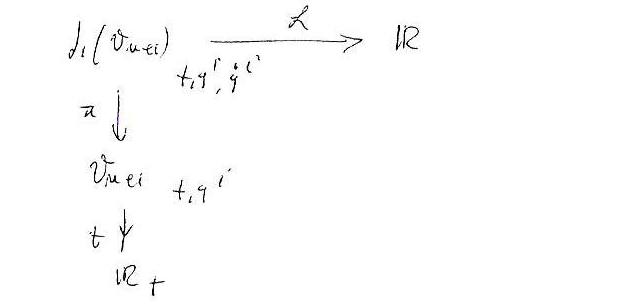 J₁(𝒱ₙ₊₁) ℒ ℝ
t, qⁱ, q̇ⁱ
π
𝒱ₙ₊₁ t, qⁱ
t
ℝ t